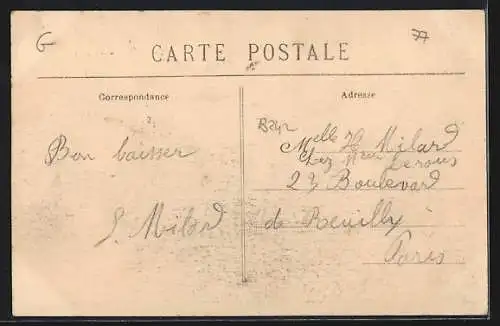 G
CARTE POSTALE
Correspondance
Adresse
Bon baisser
E. Milard
Melle H Milard
chez Mme Lerous
23 Boulevard
de Reuilly
Paris